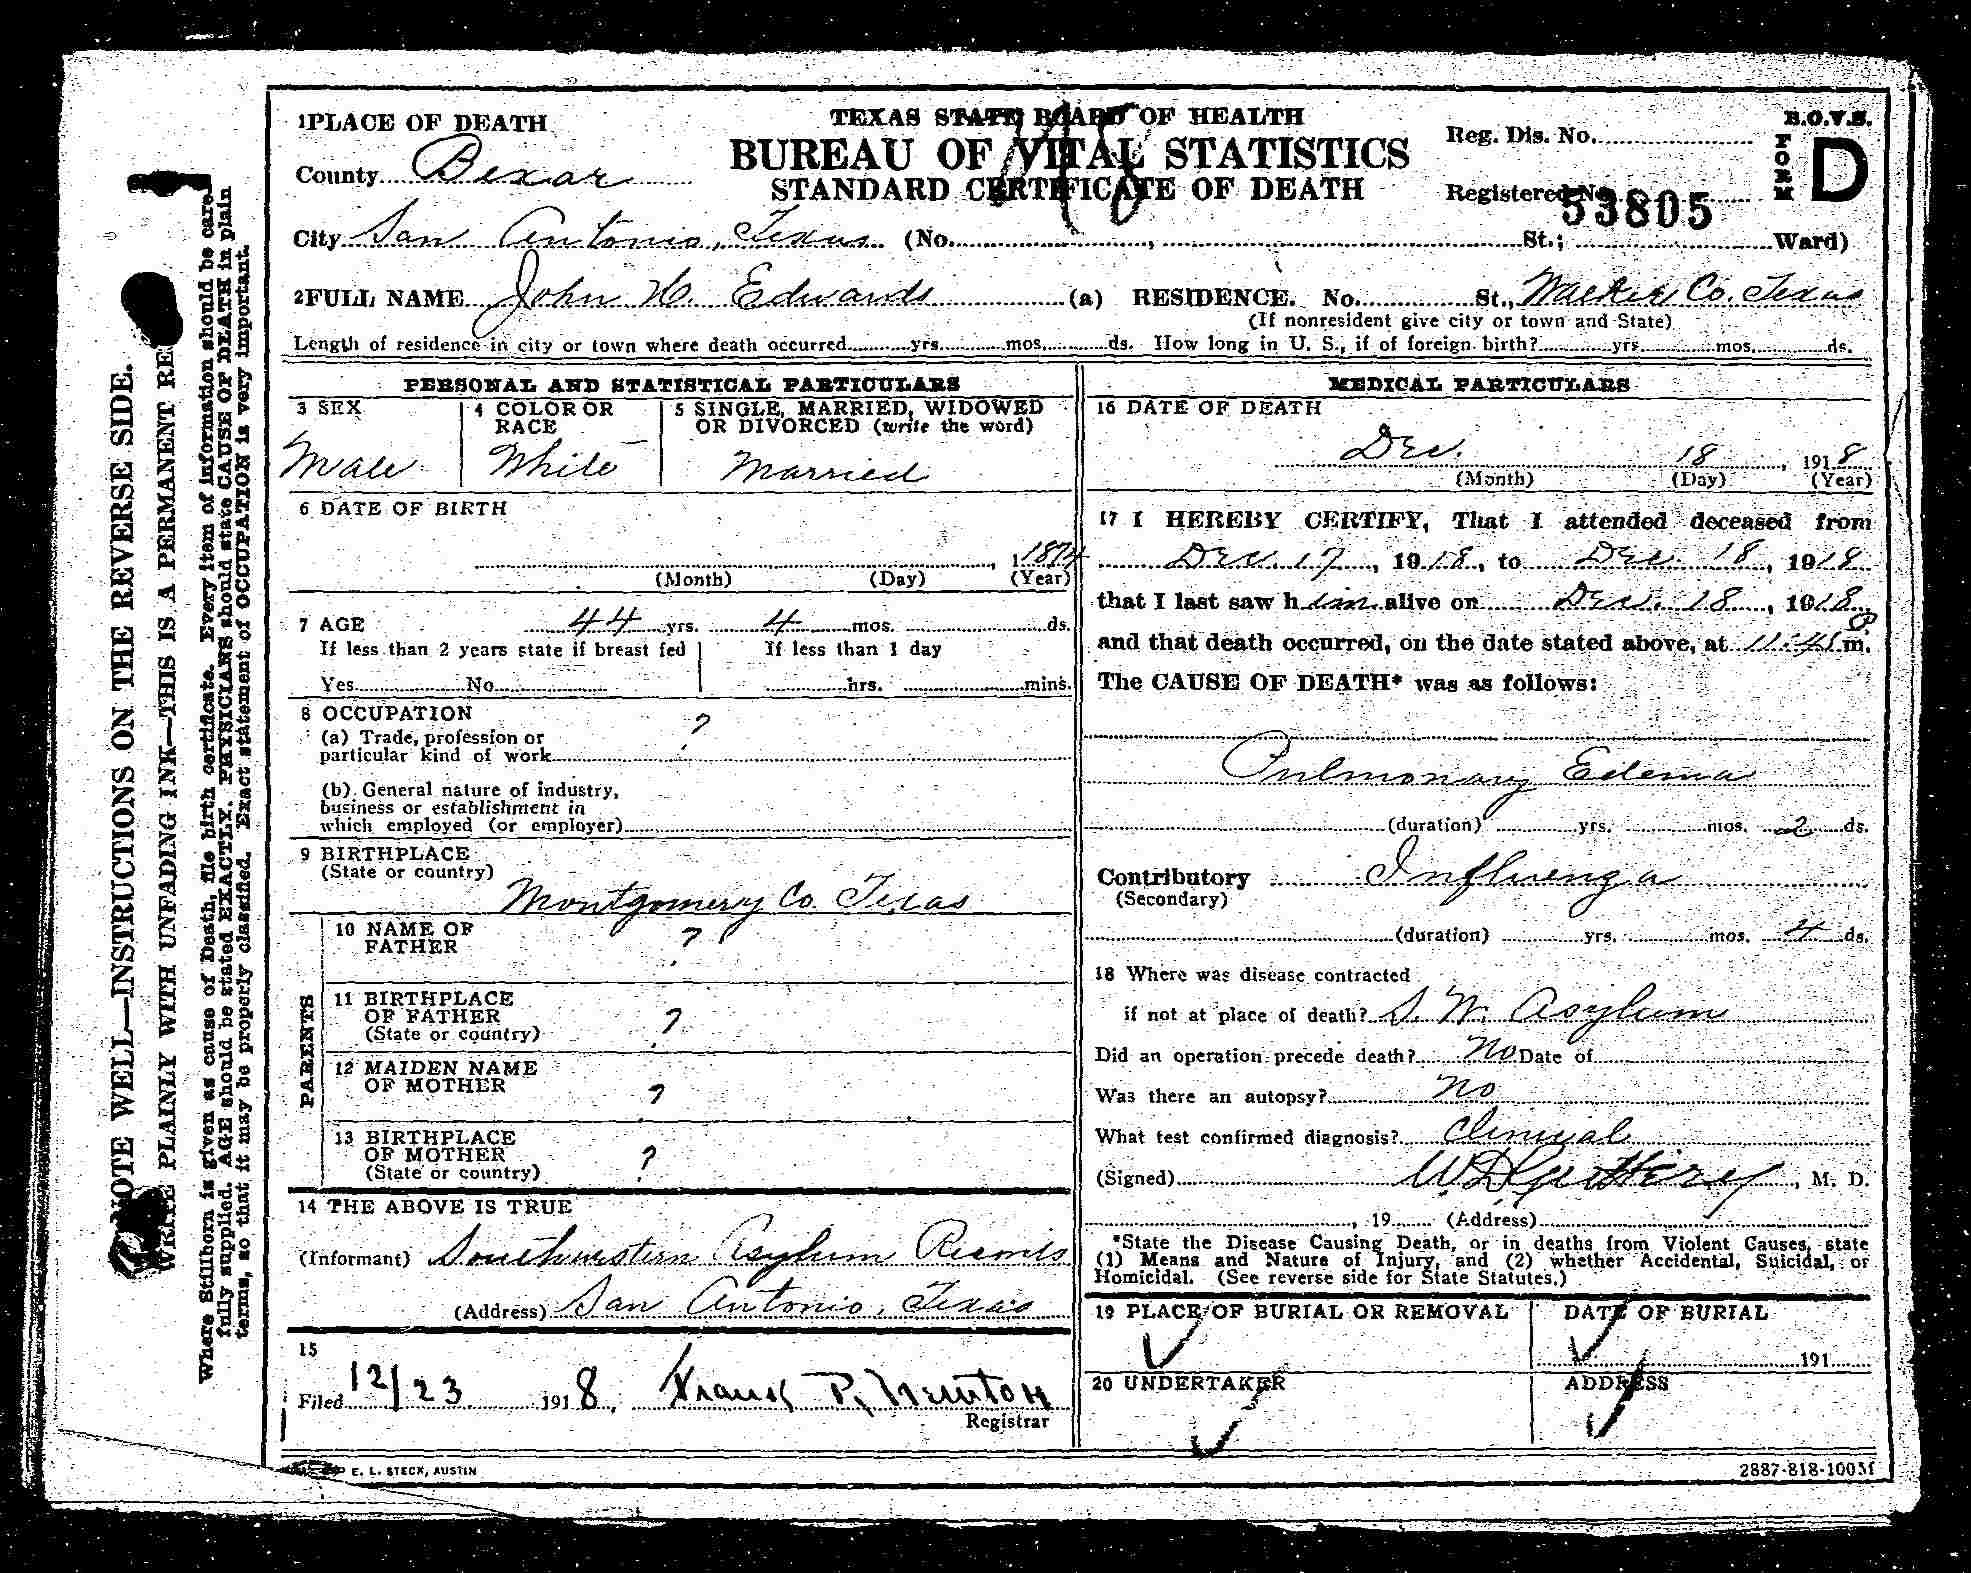 TEXAS STATE BOARD OF HEALTH
BUREAU OF VITAL STATISTICS
STANDARD CERTIFICATE OF DEATH
B.O.V.S.
FORM D
Reg. Dis. No.
Registered No. 53805
1 PLACE OF DEATH
County Bexar
City San Antonio, Texas (No. , St.; Ward)
2 FULL NAME John W. Edwards (a) RESIDENCE. No. St., Walker Co. Texas
(If nonresident give city or town and State)
Length of residence in city or town where death occurred yrs. mos. ds. How long in U. S., if of foreign birth? yrs. mos. ds.
PERSONAL AND STATISTICAL PARTICULARS
3 SEX
Male
4 COLOR OR RACE
White
5 SINGLE, MARRIED, WIDOWED
OR DIVORCED (write the word)
Married
6 DATE OF BIRTH
, 1 1874
(Month) (Day) (Year)
7 AGE 44 yrs. 4 mos. ds.
If less than 2 years state if breast fed If less than 1 day
Yes No hrs. mins.
8 OCCUPATION
(a) Trade, profession or
particular kind of work ?
(b) General nature of industry,
business or establishment in
which employed (or employer)
9 BIRTHPLACE
(State or country)
Montgomery Co. Texas
PARENTS
10 NAME OF
FATHER ?
11 BIRTHPLACE
OF FATHER
(State or country) ?
12 MAIDEN NAME
OF MOTHER ?
13 BIRTHPLACE
OF MOTHER
(State or country) ?
14 THE ABOVE IS TRUE
(Informant) Southwestern Asylum Records
(Address) San Antonio, Texas
15
Filed 12/23 1918, Frank R. Newton
Registrar
MEDICAL PARTICULARS
16 DATE OF DEATH
Dec. 18, 1918
(Month) (Day) (Year)
17 I HEREBY CERTIFY, That I attended deceased from
Dec. 17, 1918, to Dec. 18, 1918
that I last saw him alive on Dec. 18, 1918
and that death occurred, on the date stated above, at 11:45 P m.
The CAUSE OF DEATH* was as follows:
Pulmonary Edema
(duration) yrs. mos. 2 ds.
Contributory Influenza
(Secondary)
(duration) yrs. mos. 4 ds.
18 Where was disease contracted
if not at place of death? S. W. Asylum
Did an operation precede death? No Date of
Was there an autopsy? No
What test confirmed diagnosis? Clinical
(Signed) W D Guthery, M. D.
, 19 (Address)
*State the Disease Causing Death, or in deaths from Violent Causes, state
(1) Means and Nature of Injury, and (2) whether Accidental, Suicidal, or
Homicidal. (See reverse side for State Statutes.)
19 PLACE OF BURIAL OR REMOVAL
DATE OF BURIAL
191
20 UNDERTAKER
ADDRESS
E. L. STECK, AUSTIN
2887-818-100M
NOTE WELL—INSTRUCTIONS ON THE REVERSE SIDE.
WRITE PLAINLY WITH UNFADING INK—THIS IS A PERMANENT RE
Where Stillborn is given as cause of Death, file birth certificate. Every item of information should be care-
fully supplied. AGE should be stated EXACTLY. PHYSICIANS should state CAUSE OF DEATH in plain
terms, so that it may be properly classified. Exact statement of OCCUPATION is very important.